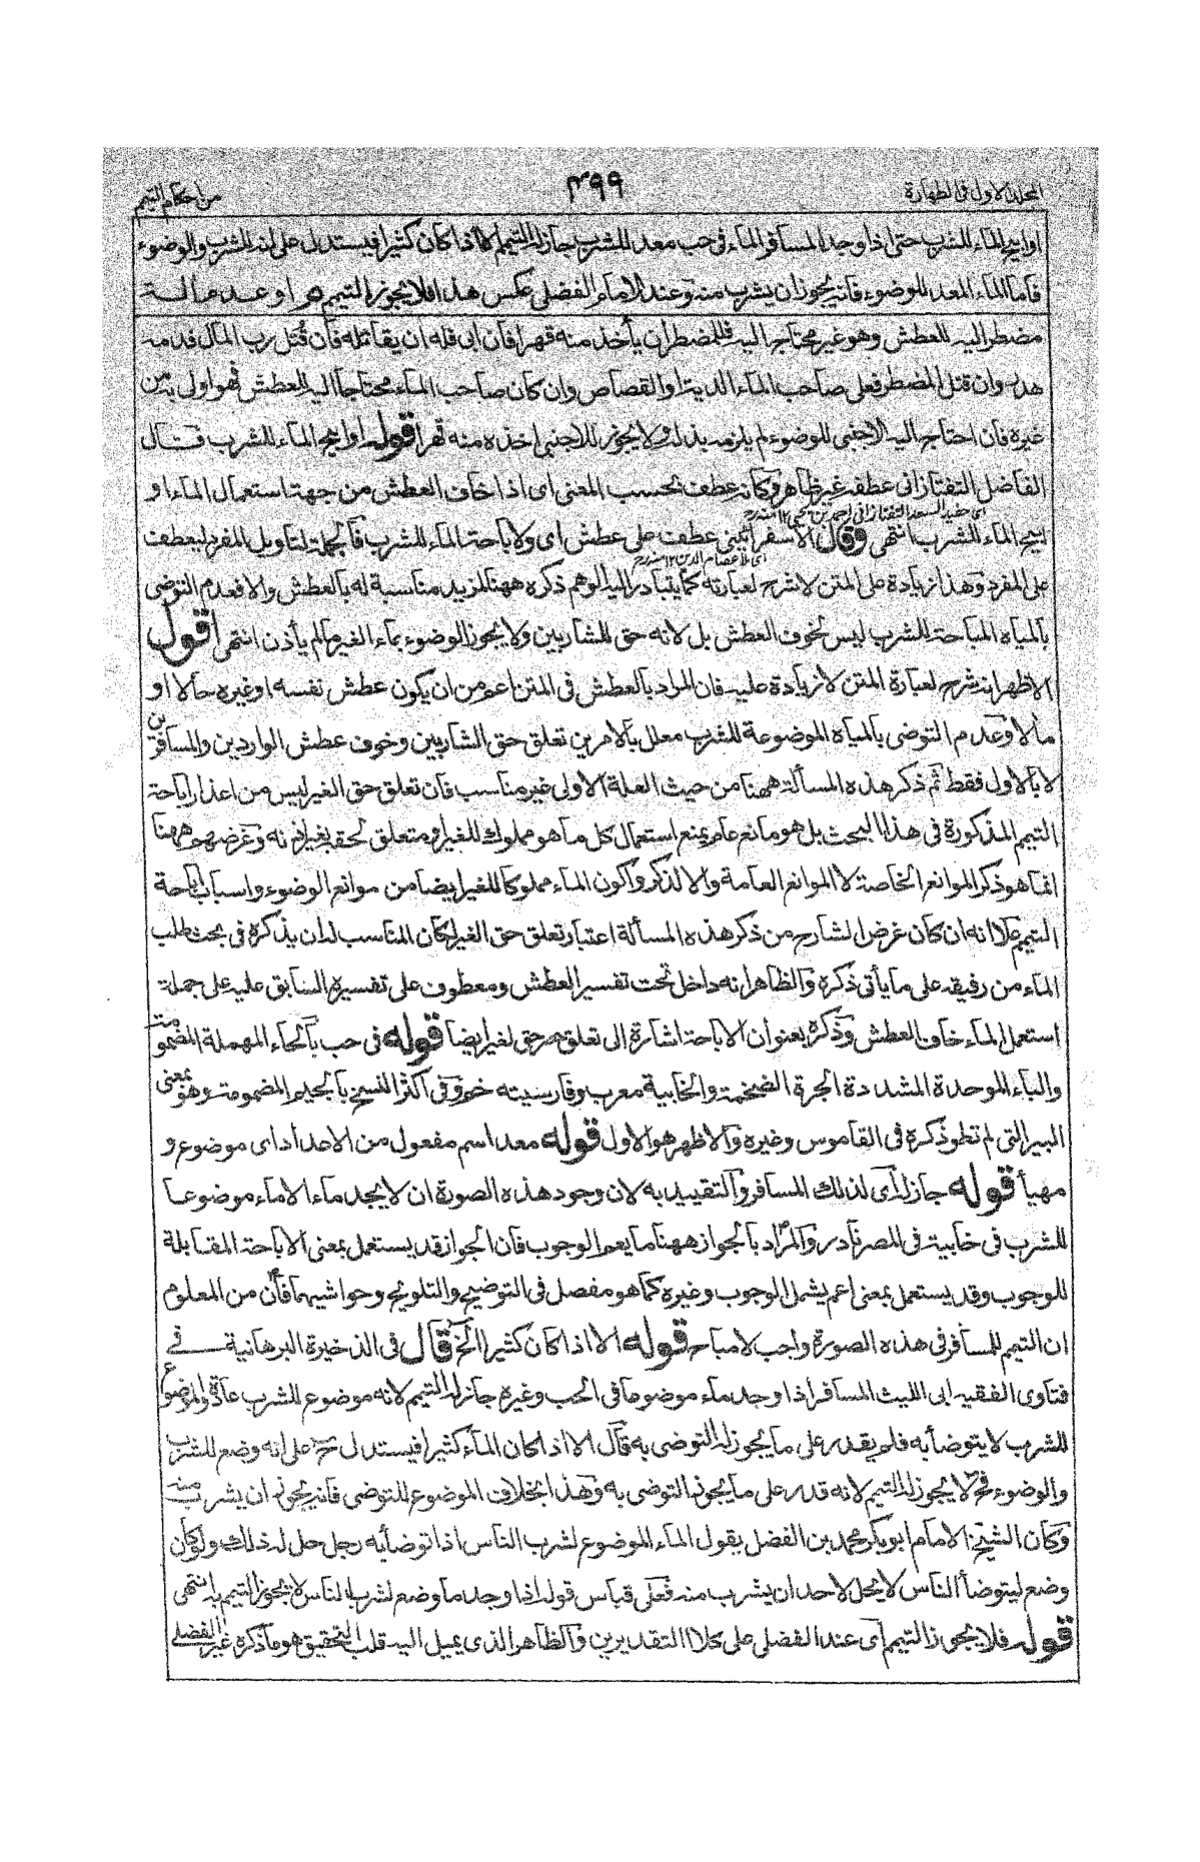 المجلد الاول فى الطهارة
٤٩٩
من احكام التيمم
او ابيح الماء للشرب حتى اذا وجد المسافر الماء فى حب معد للشرب جاز له التيمم الا اذا كان كثيرا فيستدل على انه للشرب والوضوء
فاما الماء المعد للوضوء فانه يجوز ان يشرب منه وعند الامام الفضلى عكس هذا فلا يجوز التيمم هو او عدم الة
مضطر اليه للعطش وهو غير محتاج اليه فللمضطر ان يأخذ منه قهرا فان ابى فله ان يقاتله فان قتل رب المال فدمه
هدر وان قتل المضطر فعلى صاحب الماء الدية او القصاص وان كان صاحب الماء محتاجا اليه للعطش فهو اولى به من
غيره فان احتاج اليه الاجنبى للوضوء لم يلزمه بذله ولا يجوز للاجنبى اخذه منه قهرا قوله او ابيح الماء للشرب قال
الفاضل التفتازانى عطفه غير ظاهر وكانه عطف بحسب المعنى اى اذا خاف العطش من جهة استعمال الماء او
اى حفيد السعد التفتازانى احمد بن يحيى ١٢ منه رح
ابيح الماء للشرب انتهى وقال الاسفرائينى عطف على عطش اى ولاباحة الماء للشرب فالجملة لتاويل المفرد ليعطف
اى ملا عصام الدين ١٢ منه رح
على المفرد وهذا زيادة على المتن لا شرح لعبارته كما يتبادر اليه الوهم ذكره ههنا لمزيد مناسبة له بالعطش والا فعدم التوضى
بالمياه المباحة للشرب ليس لخوف العطش بل لانه حق للشاربين ولا يجوز الوضوء بماء الغير ما لم يأذن انتهى اقول
الاظهر انه شرح لعبارة المتن لا زيادة عليه فان المراد بالعطش فى المتن اعم من ان يكون عطش نفسه او غيره حالا او
مآلا وعدم التوضى بالمياه الموضوعة للشرب معلل بالامرين تعلق حق الشاربين وخوف عطش الواردين والمسافرين
لا بالاول فقط ثم ذكر هذه المسألة ههنا من حيث العلة الاولى غير مناسب فان تعلق حق الغير ليس من اعذار اباحة
التيمم المذكورة فى هذا البحث بل هو مانع عام يمنع استعمال كل ما هو مملوك للغير او متعلق لحقه بغير اذنه وغرضهم ههنا
انما هو ذكر الموانع الخاصة لا الموانع العامة والا لذكروا كون الماء مملوكا للغير ايضا من موانع الوضوء واسباب اباحة
التيمم علا انه ان كان غرض الشارح من ذكر هذه المسألة اعتبار تعلق حق الغير لكان المناسب له ان يذكره فى بحث طلب
الماء من رفيقه على ما يأتى ذكره والظاهر انه داخل تحت تفسير العطش ومعطوف على تفسيره السابق عليه على جملة
استعمل الماء خاف العطش وذكره بعنوان الاباحة اشارة الى تعلق حق لغير ايضا قوله فى حب بالحاء المهملة المضمومة
والباء الموحدة المشددة الجرة الضخمة والخابية معرب وفارسيته خم وفى اكثر النسخ بالجيم المضمومة وهو بمعنى
البير التى لم تطو ذكره فى القاموس وغيره والاظهر هو الاول قوله معد اسم مفعول من الاعداد اى موضوع و
مهيأ قوله جاز له اى لذلك المسافر والتقييد به لان وجود هذه الصورة ان لا يجد ماء الا ماء موضوعا
للشرب فى خابية فى المصر نادر والمراد بالجواز ههنا ما يعم الوجوب فان الجواز قد يستعمل بمعنى الاباحة المقابلة
للوجوب وقد يستعمل بمعنى اعم يشمل الوجوب وغيره كما هو مفصل فى التوضيح والتلويح وحواشيهما فان من المعلوم
ان التيمم للمسافر فى هذه الصورة واجب لا مباح قوله الا اذا كان كثيرا الخ قال فى الذخيرة البرهانية فى
فتاوى الفقيه ابى الليث المسافر اذا وجد ماء موضوعا فى الحب وغيره جاز له التيمم لانه موضوع للشرب عادة والموضوع
للشرب لا يتوضأ به فلم يقدر على ما يجوز له التوضى به قال الا اذا كان الماء كثيرا فيستدل ح على انه وضع للشرب
والوضوء فح لا يجوز له التيمم لانه قدر على ما يجوز له التوضى به وهذا بخلاف الموضوع للتوضى فانه يجوز ان يشرب منه
وكان الشيخ الامام ابو بكر محمد بن الفضل يقول الماء الموضوع لشرب الناس اذا توضأ به رجل حل له ذلك ولو كان
وضع ليتوضأ الناس لا يحل لاحد ان يشرب منه فعلى قياس قوله اذا وجد ما وضع لشرب الناس لا يجوز التيمم به انتهى
قوله فلا يجوز التيمم اى عند الفضلى على كلا التقديرين والظاهر الذى يميل اليه قلب التحقيق هو ما ذكره غير الفضلى